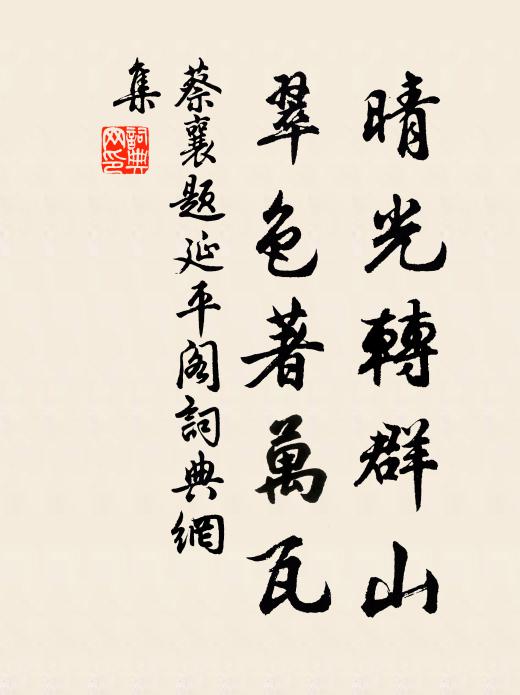 晴光轉群山
翠色著萬瓦
蔡襄題延平閣詞典網
集
詞典网印